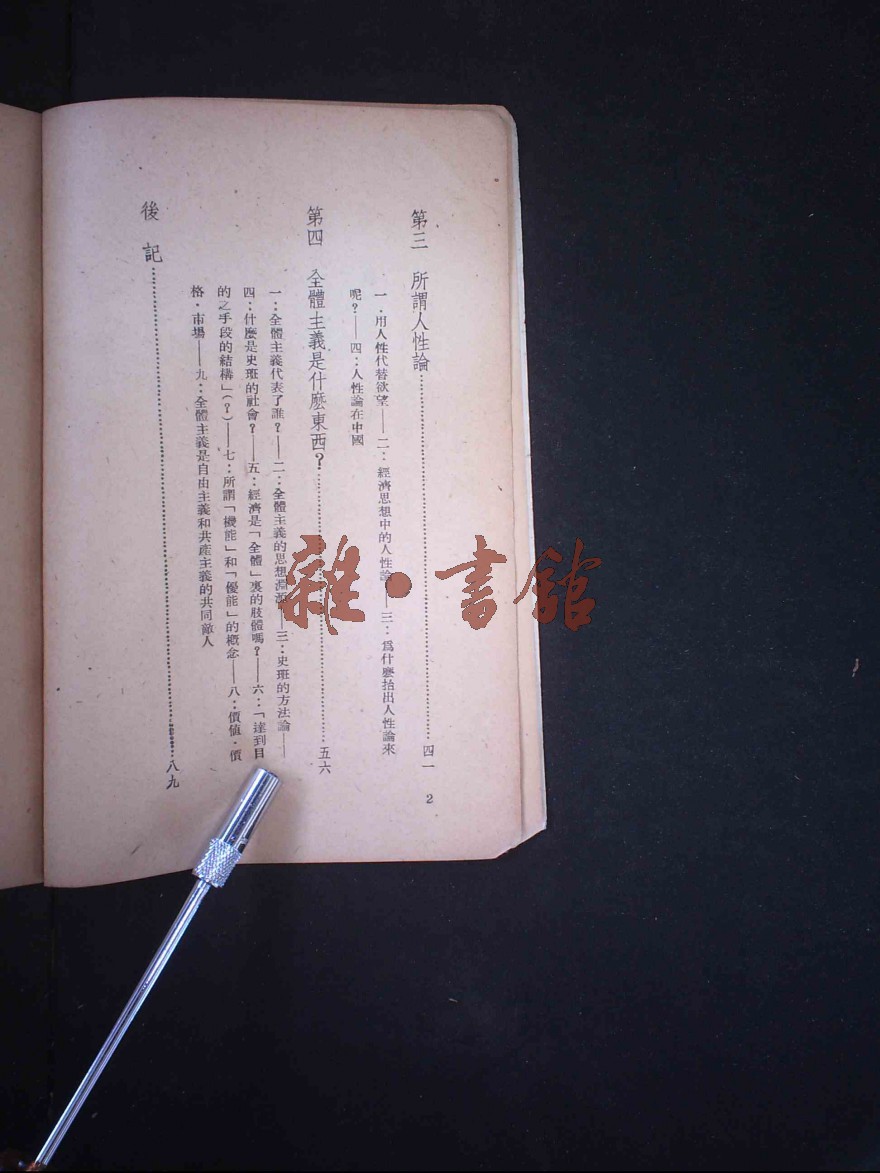 第三　所謂人性論…………四一
一．用人性代替欲望——二：經濟思想中的人性論——三：爲什麼抬出人性論來
呢？——四：人性論在中國
第四　全體主義是什麽東西？…………五六
一：全體主義代表了誰？——二：全體主義的思想淵源——三：史班的方法論——
四：什麽是史班的社會？——五：經濟是「全體」裏的肢體嗎？——六：「達到目
的之手段的結構」（？）——七：所謂「機能」和「優能」的概念——八：價値．價
格．市場——九：全體主義是自由主義和共產主義的共同敵人
後記…………八九
2
雜·書館